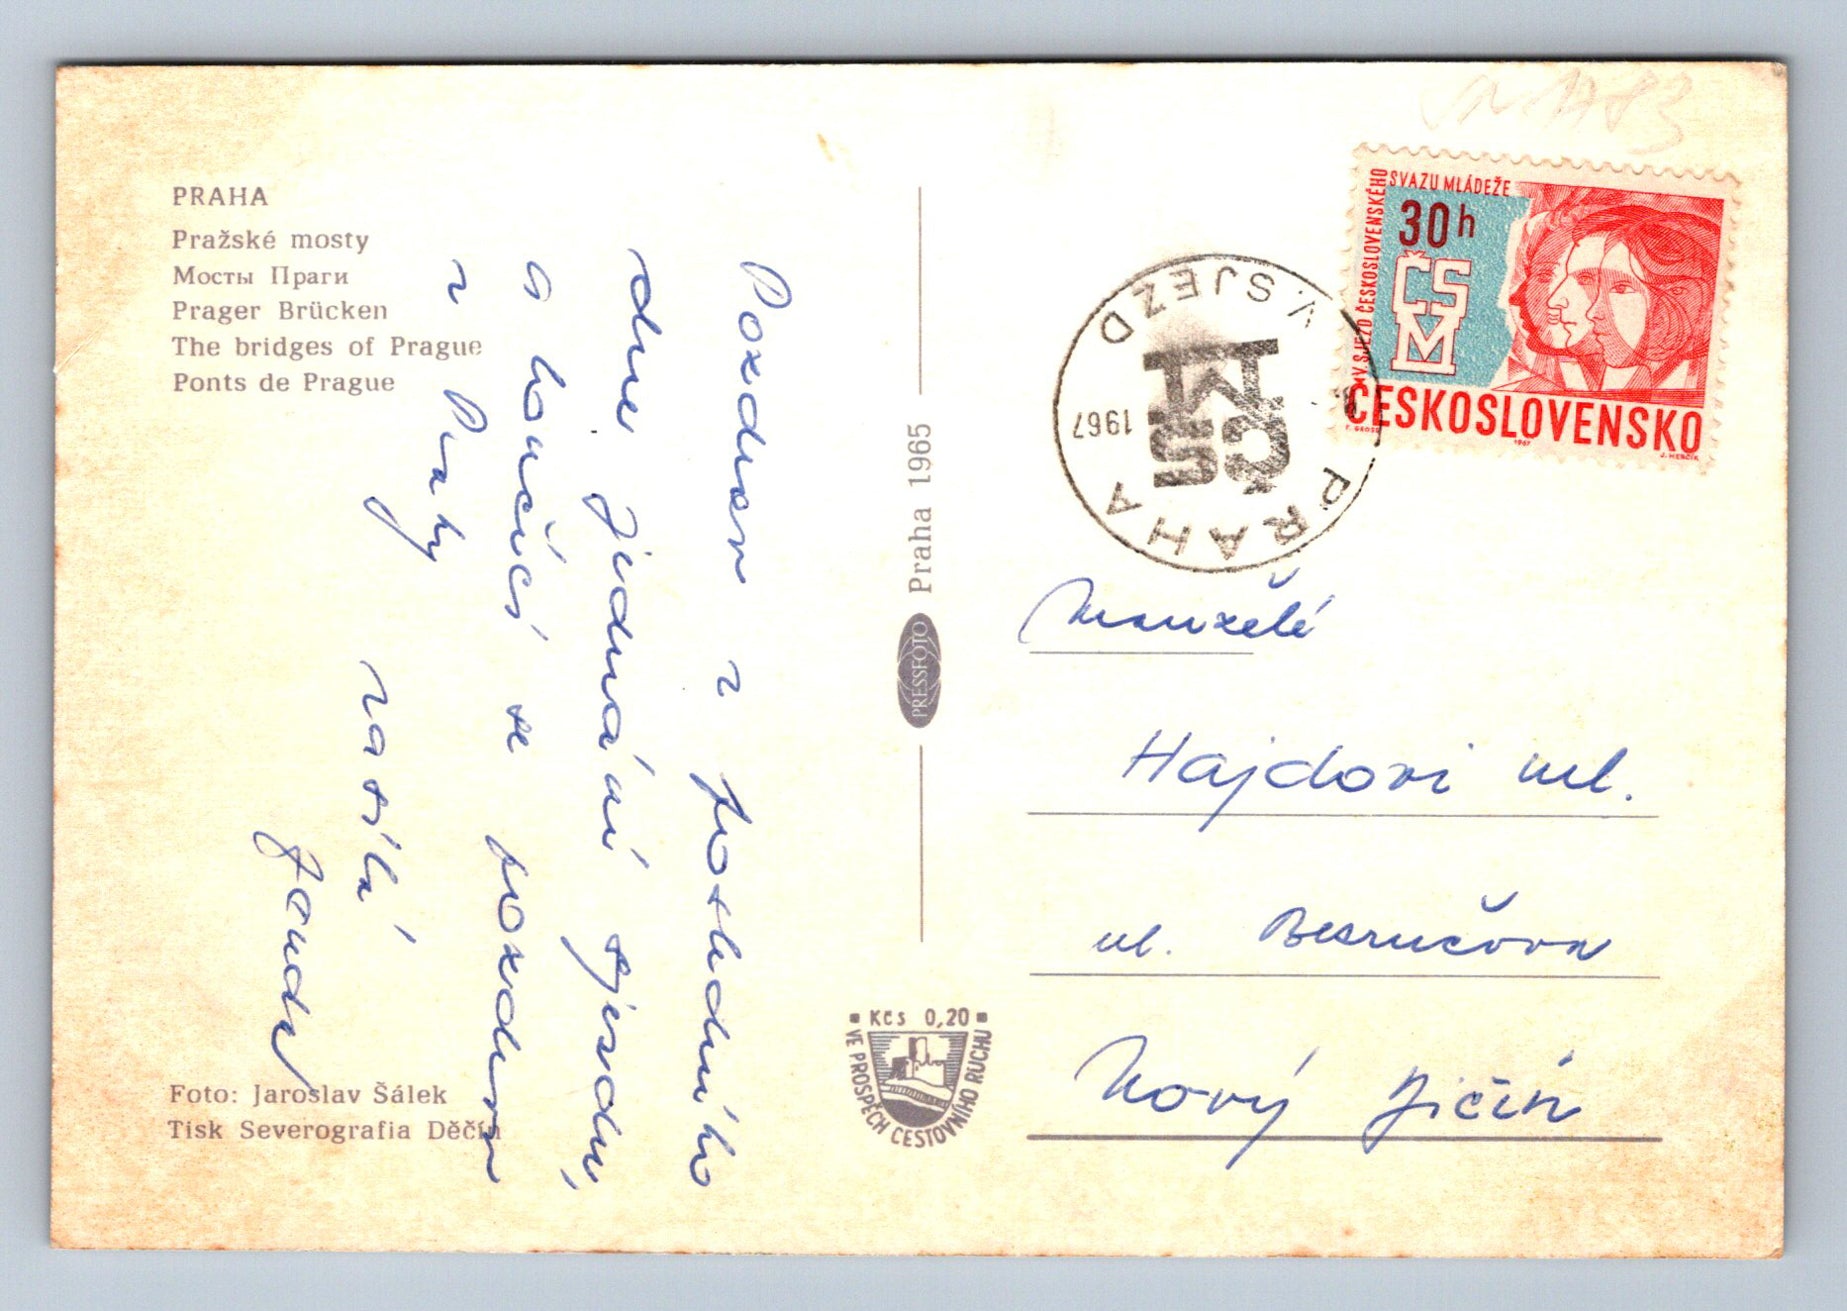 PRAHA
Pražské mosty
Мосты Праги
Prager Brücken
The bridges of Prague
Ponts de Prague
Pozdrav z posledního
dne jednání sjezdu,
a loučící se pozdrav
z Prahy
zasílá
Foto: Jaroslav Šálek
Tisk Severografia Děčín
Praha 1965
PRESSFOTO
Kčs 0,20
VE PROSPĚCH CESTOVNÍHO RUCHU
V. SJEZD ČESKOSLOVENSKÉHO
SVAZU MLÁDEŽE
30h
ČSM
ČESKOSLOVENSKO
1967
J. HERČÍK
PRAHA
V. SJEZD
1967
ČSM
Manželé
Hajdovi ml.
ul. Bezručova
Nový Jičín